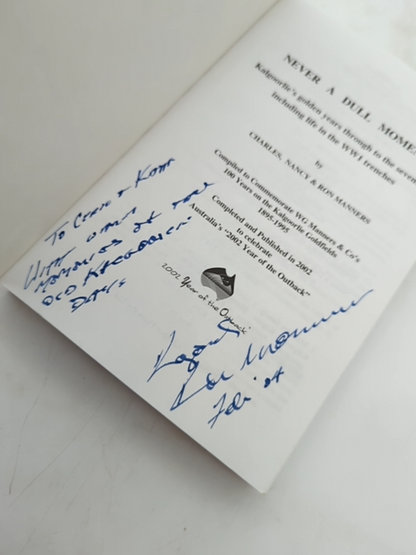 NEVER A DULL MOME
Kalgoorlie's golden years through to the seven
including life in the WW1 trenches
by
CHARLES, NANCY & RON MANNERS
Compiled to Commemorate WG Manners & Co's
100 Years on the Kalgoorlie Goldfields
1895-1995
Completed and Published in 2002
to celebrate
Australia's "2002 Year of the Outback"
2002 Year of the Outback
TO &
WITH
MEMORIES OF
OLD KALGOORLIE
DAYS
Regards
Ron Manners
Feb '04